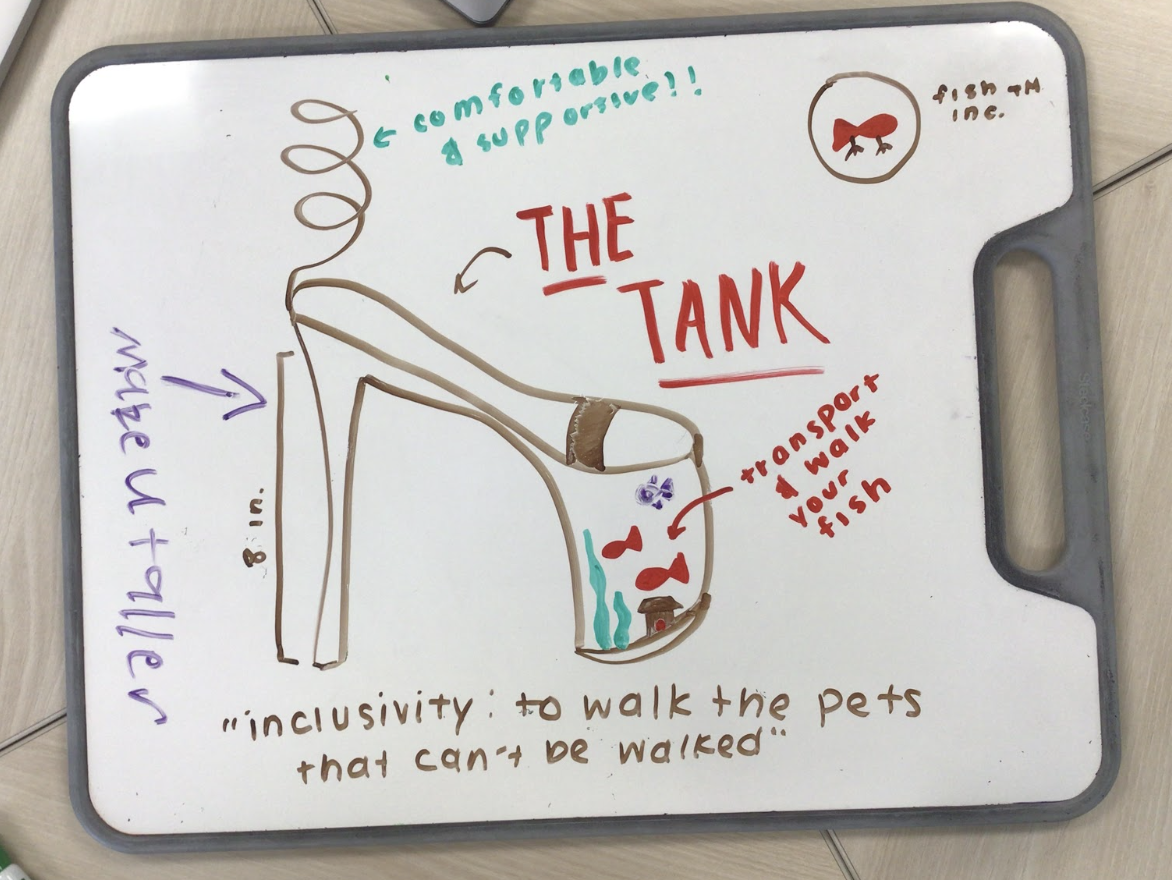 comfortable
& supportive!!
fish TM
inc.
THE
TANK
make u taller
8 in.
transport
& walk
your
fish
"inclusivity: to walk the pets
that can't be walked"